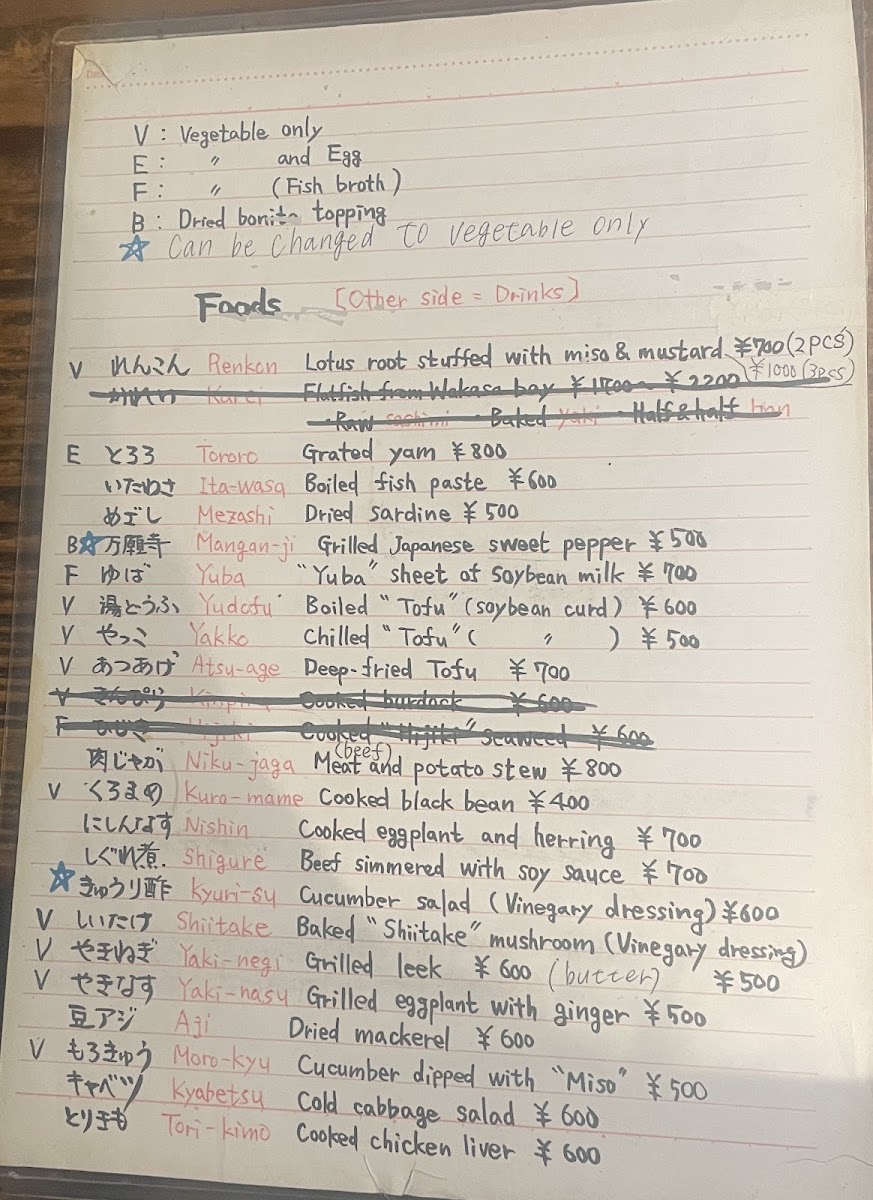 V : Vegetable only
E : 〃 and Egg
F : 〃 (Fish broth)
B : Dried bonito topping
☆ Can be changed to vegetable only
Foods [Other side = Drinks]
V れんこん Renkon Lotus root stuffed with miso & mustard ¥700 (2pcs)
¥1000 (3pcs)
かれい Karei Flatfish from Wakasa bay ¥1700~ ¥2200
Raw sashimi Baked yaki Half & half han
E とろろ Tororo Grated yam ¥800
いたわさ Ita-wasa Boiled fish paste ¥600
めざし Mezashi Dried sardine ¥500
B☆万願寺 Mangan-ji Grilled Japanese sweet pepper ¥500
F ゆば Yuba "Yuba" sheet of soybean milk ¥700
V 湯とうふ Yudofu Boiled "Tofu" (soybean curd) ¥600
V やっこ Yakko Chilled "Tofu" ( 〃 ) ¥500
V あつあげ Atsu-age Deep-fried Tofu ¥700
V きんぴら Kinpira Cooked burdock ¥600
F ひじき Hijiki Cooked "Hijiki" seaweed ¥600
肉じゃが Niku-jaga Meat (beef) and potato stew ¥800
V くろまめ Kuro-mame Cooked black bean ¥400
にしんなす Nishin Cooked eggplant and herring ¥700
しぐれ煮. Shigure Beef simmered with soy sauce ¥700
☆きゅうり酢 Kyuri-su Cucumber salad (Vinegary dressing) ¥600
V しいたけ Shiitake Baked "Shiitake" mushroom (Vinegary dressing) ¥500
V やきねぎ Yaki-negi Grilled leek ¥600 (butter)
V やきなす Yaki-nasu Grilled eggplant with ginger ¥500
豆アジ Aji Dried mackerel ¥600
V もろきゅう Moro-kyu Cucumber dipped with "Miso" ¥500
キャベツ Kyabetsu Cold cabbage salad ¥600
とりきも Tori-kimo Cooked chicken liver ¥600